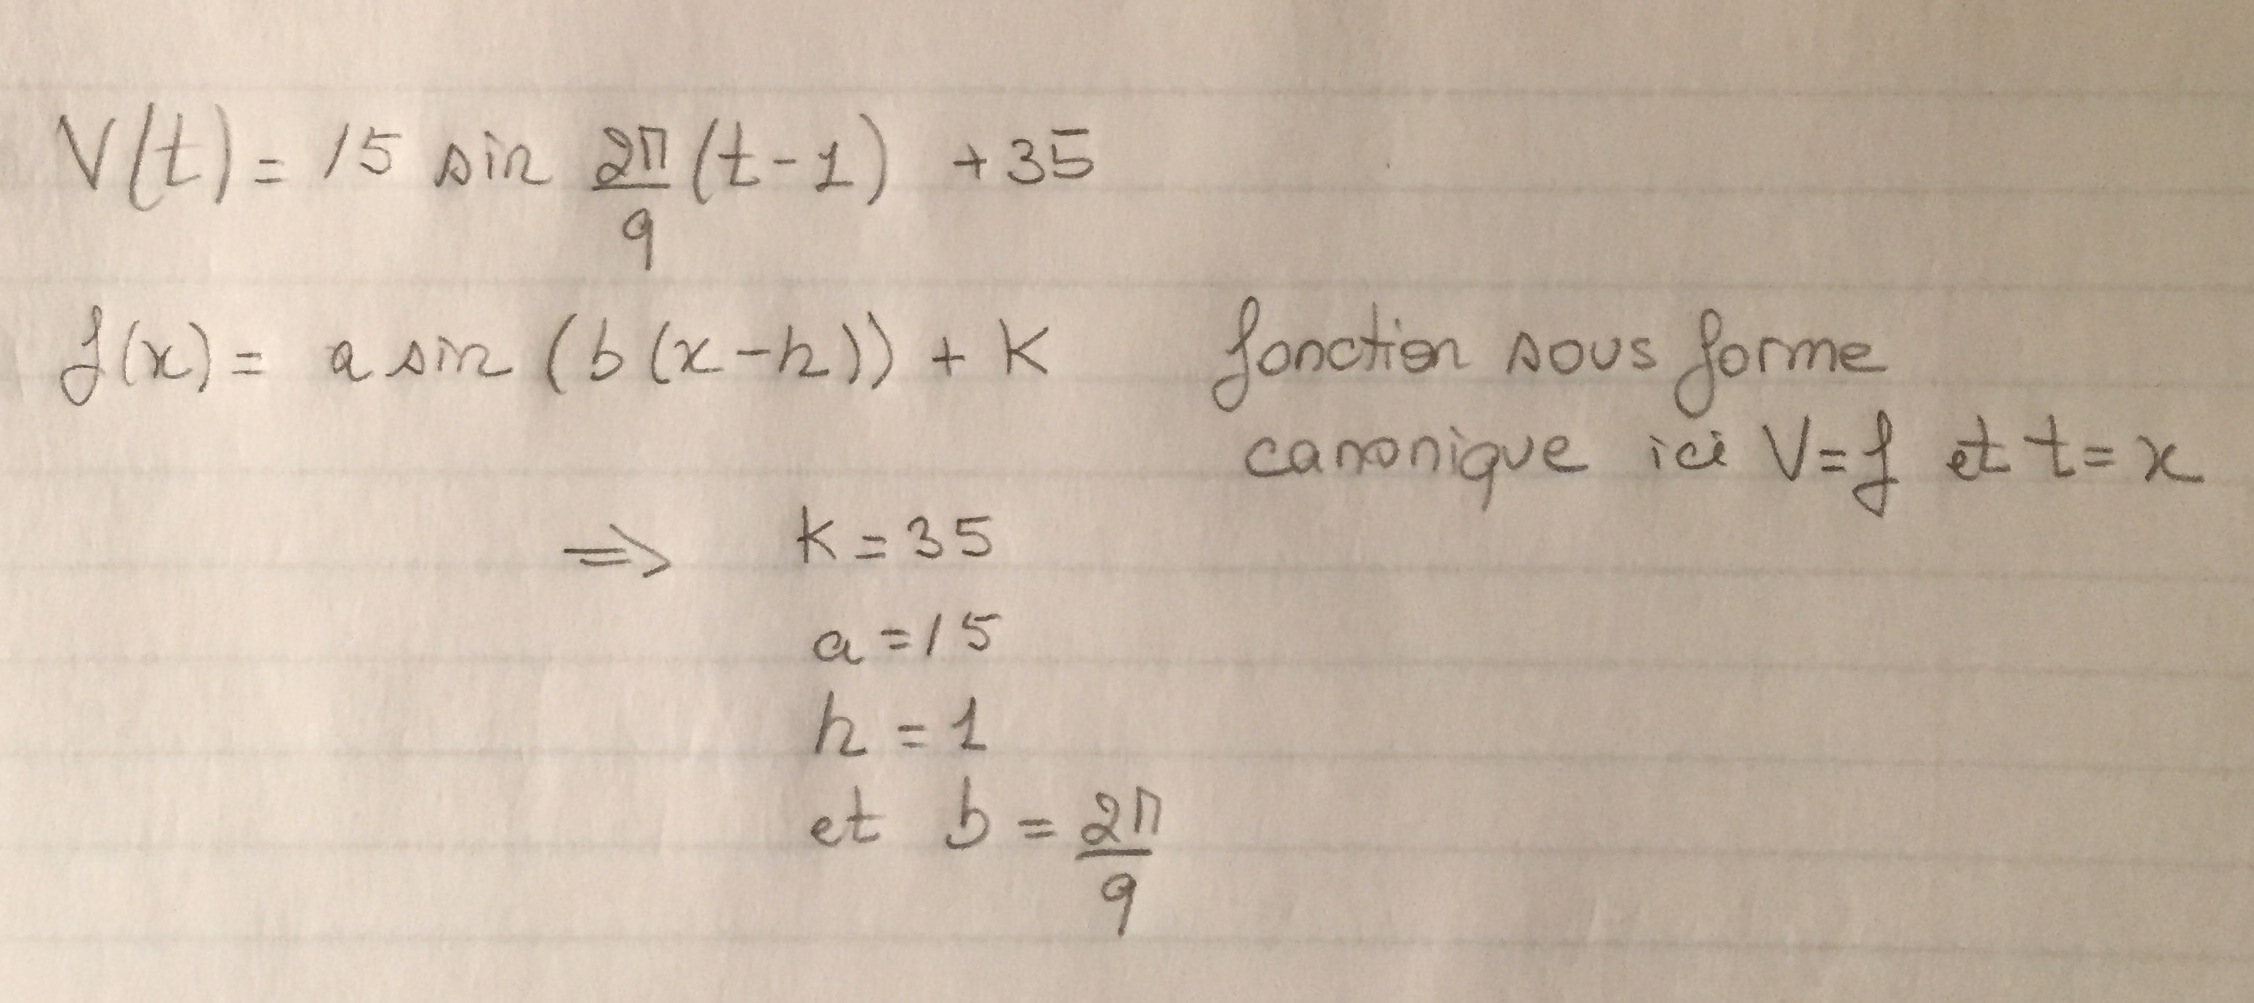 V(t) = 15 sin 2π/9 (t-1) +35
f(x) = a sin (b(x-h)) + K fonction sous forme
canonique ici V=f et t=x
=> K = 35
a = 15
h = 1
et b = 2π/9